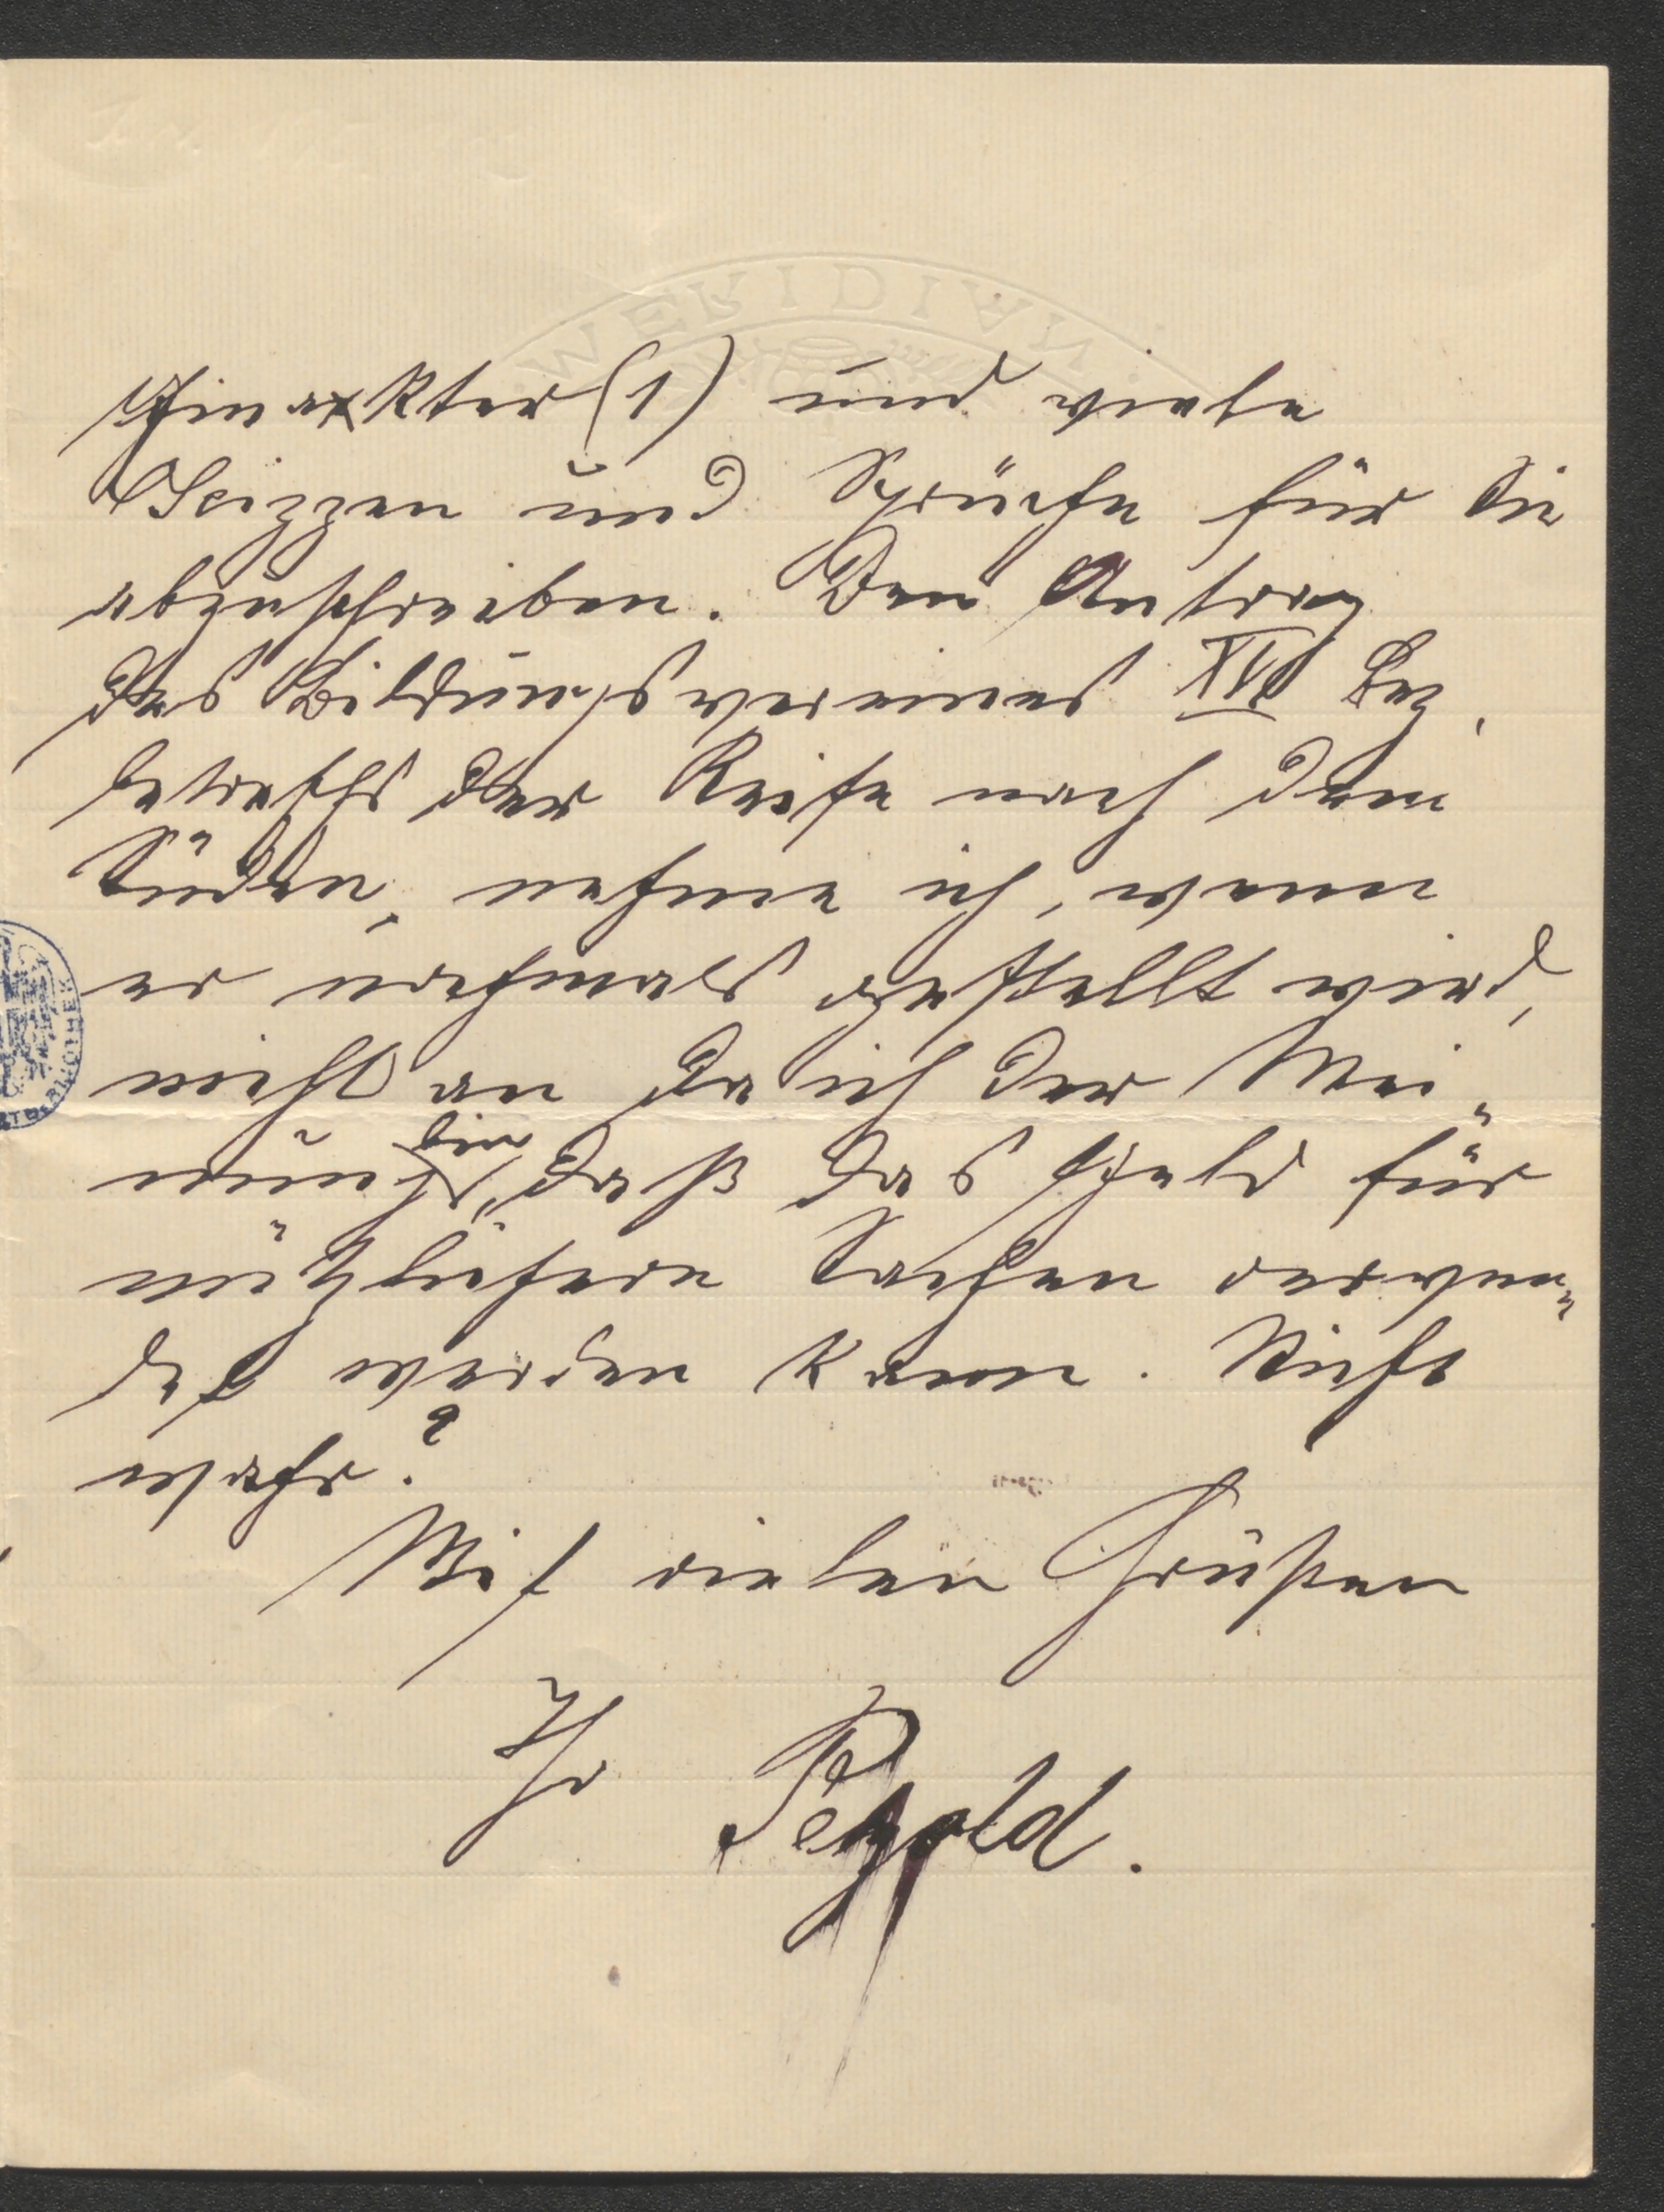 MERIDIAN
Einakter (1) und viele
Skizzen und Sprüche für Sie
abzuschreiben. Den Antrag
des Bildungsvereines XVI Bez.
betreffs der Reise nach dem
Süden, nehme ich, wenn
er nochmals gestellt wird,
nicht an da ich der Mei„
nung bin, daß das Geld für
nützlichere Sachen verwen„
det werden kann. Nicht
wahr?
Mit vielen Grüßen
Ihr Petzold.